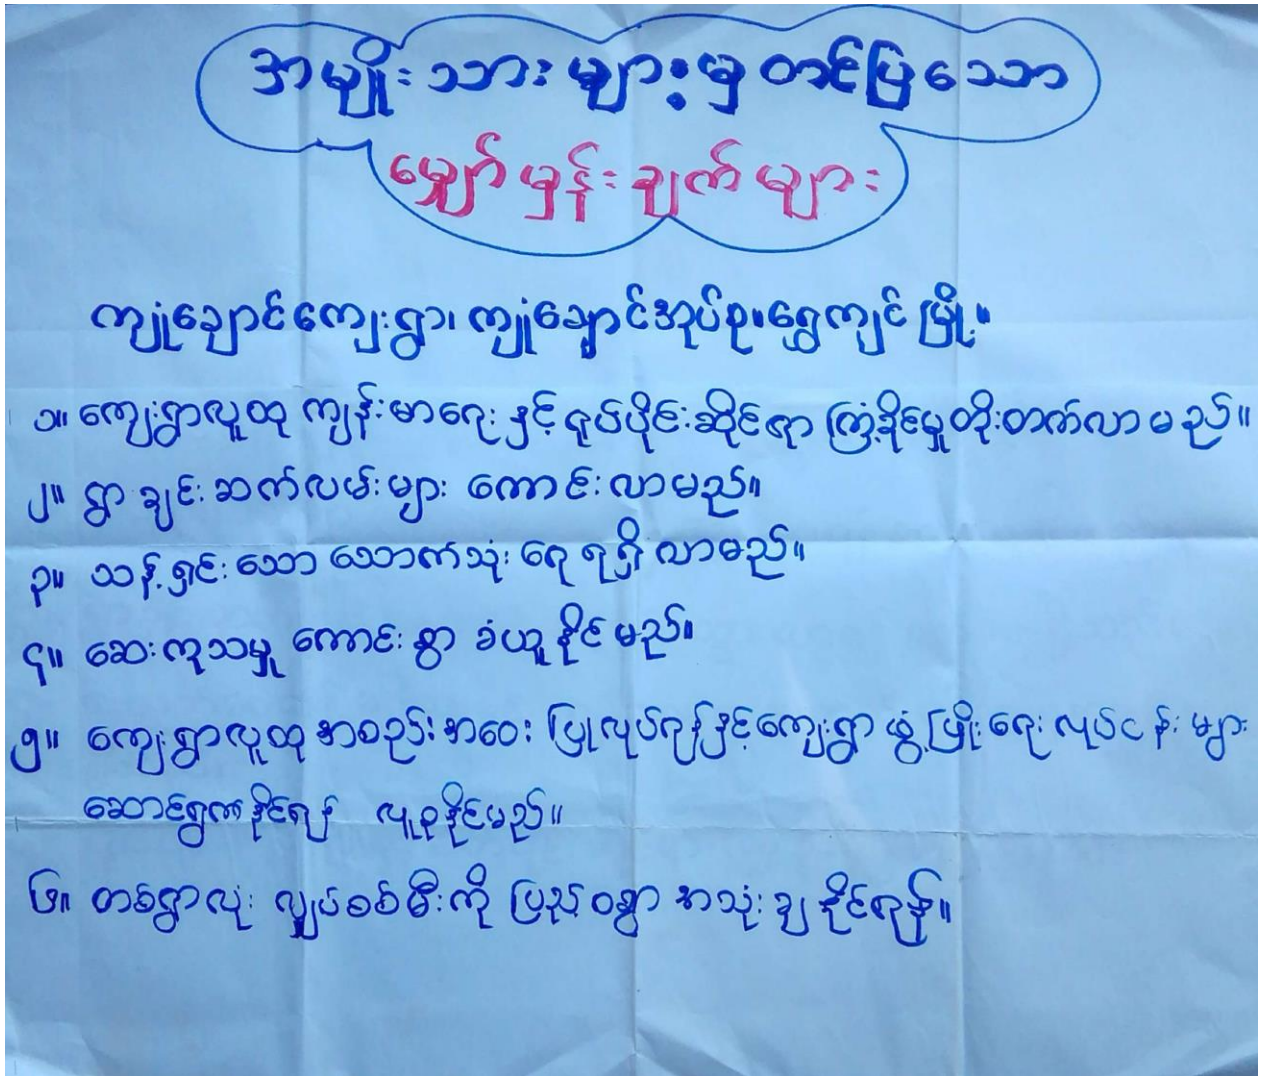 အမျိုးသားများမှတင်ပြသော
မျှော်မှန်းချက်များ
ကျုံချောင်ကျေးရွာ၊ ကျုံချောင်အုပ်စု၊ ရွှေကျင်မြို့။
၁။ ကျေးရွာလူထု ကျန်းမာရေးနှင့် ရုပ်ပိုင်းဆိုင်ရာ ကြံ့ခိုင်မှုတိုးတက်လာမည်။
၂။ ရွာချင်းဆက်လမ်းများ ကောင်းလာမည်။
၃။ သန့်ရှင်းသော သောက်သုံးရေ ရရှိလာမည်။
၄။ ဆေးကုသမှု ကောင်းစွာ ခံယူနိုင်မည်။
၅။ ကျေးရွာလူထုအစည်းအဝေး ပြုလုပ်ရန်နှင့်ကျေးရွာ ဖွံ့ဖြိုးရေးလုပ်ငန်းများ
ဆောင်ရွက်နိုင်ရန် လူစုနိုင်မည်။
၆။ တစ်ရွာလုံး လျှပ်စစ်မီးကို ပြည့်ဝစွာ အသုံးချနိုင်ရန်။